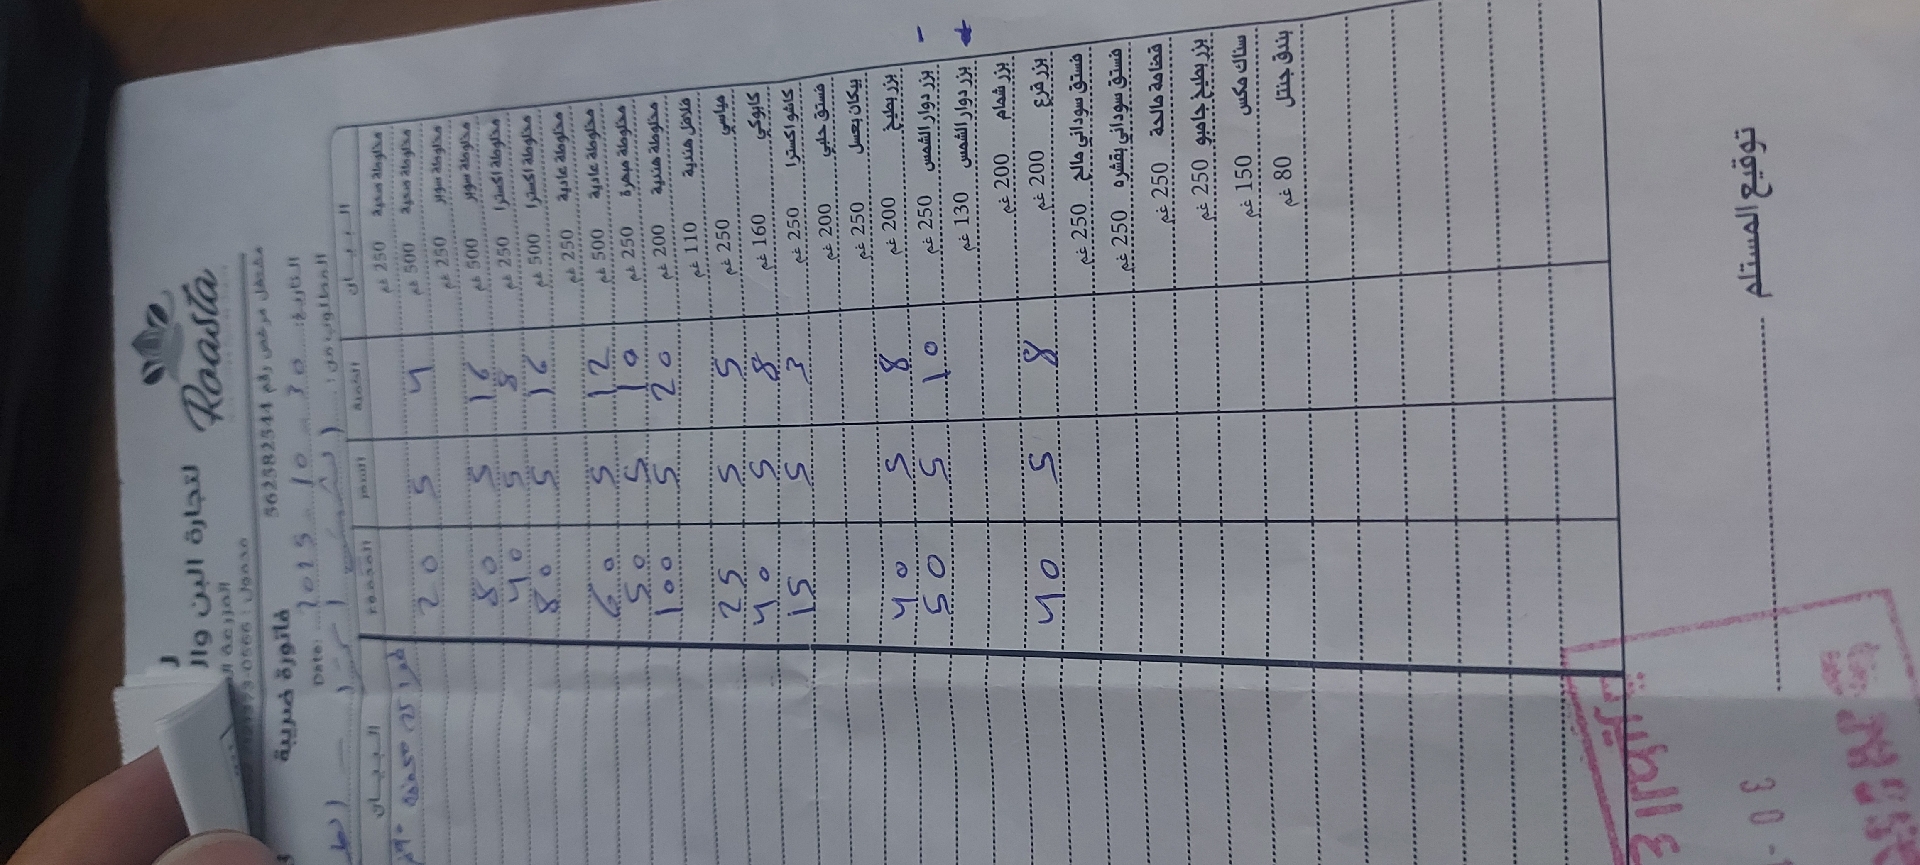 Raawsta
لتجارة البن وال
مشغل مرخص رقم 562582544
فاتورة ضريبية
التاريخ: 30 10 2025 Date:
المطلوب من
البيــان الكمية السعر المجموع
مخلوطة صحية 250 غم
مخلوطة صحية 500 غم 4 5 20
مخلوطة سوبر 250 غم
مخلوطة سوبر 500 غم 16 5 80
مخلوطة اكسترا 250 غم 8 5 40
مخلوطة اكسترا 500 غم 16 5 80
مخلوطة عادية 250 غم
مخلوطة عادية 500 غم 12 5 60
مخلوطة مبهرة 250 غم 10 5 50
مخلوطة هندية 200 غم 20 5 100
فلافل هندية 110 غم
مياسي 250 غم 5 5 25
كابوكي 160 غم 8 5 40
كاشو اكسترا 250 غم 3 5 15
فستق حلبي 200 غم
بيكان بعسل 250 غم
بزر بطيخ 200 غم 8 5 40
بزر دوار الشمس 250 غم 10 5 50
بزر دوار الشمس 130 غم
بزر شمام 200 غم
بزر قرع 200 غم 8 5 40
فستق سوداني مالح 250 غم
فستق سوداني بقشره 250 غم
قضامة مالحة 250 غم
بزر بطيخ جامبو 250 غم
سناك مكس 150 غم
بندق جنتل 80 غم
توقيع المستلم
البيــان
30